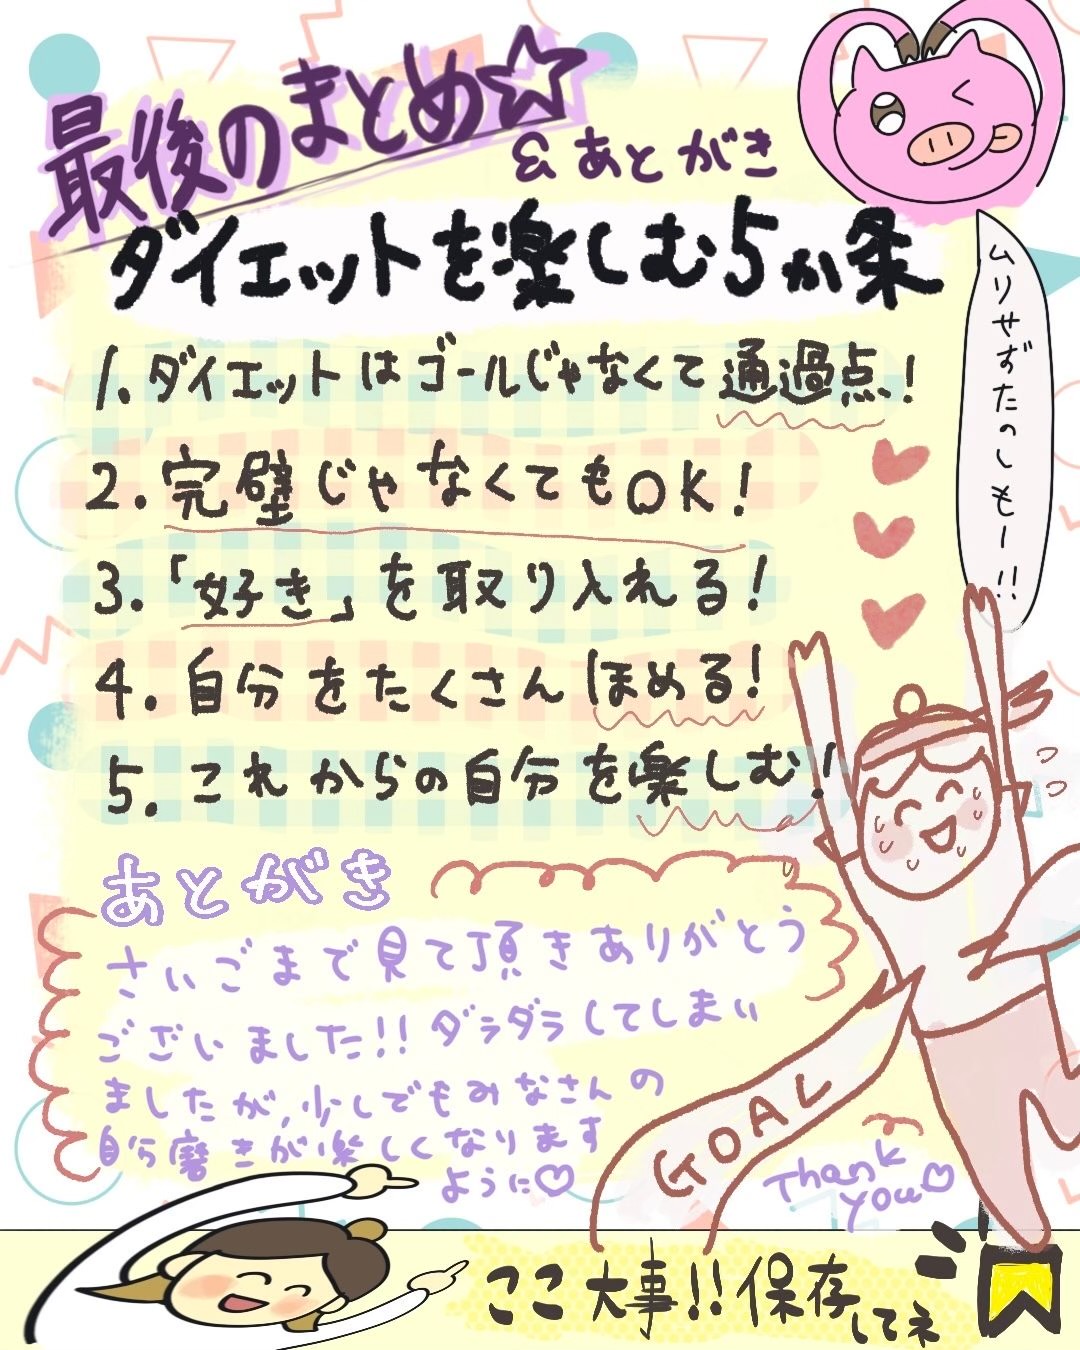 最後のまとめ☆
&あとがき
ダイエットを楽しむ5か条
ムリせずたのしもー!!
1.ダイエットはゴールじゃなくて通過点!
2.完璧じゃなくてもOK!
3.「好き」を取り入れる!
4.自分をたくさんほめる!
5.これからの自分を楽しむ!
あとがき
さいごまで見て頂きありがとう
ございました!!ダラダラしてしまい
ましたが,少しでもみなさんの
自分磨きが楽しくなります
ように♡
GOAL
Thank
you♡
ここ大事!!保存してネ